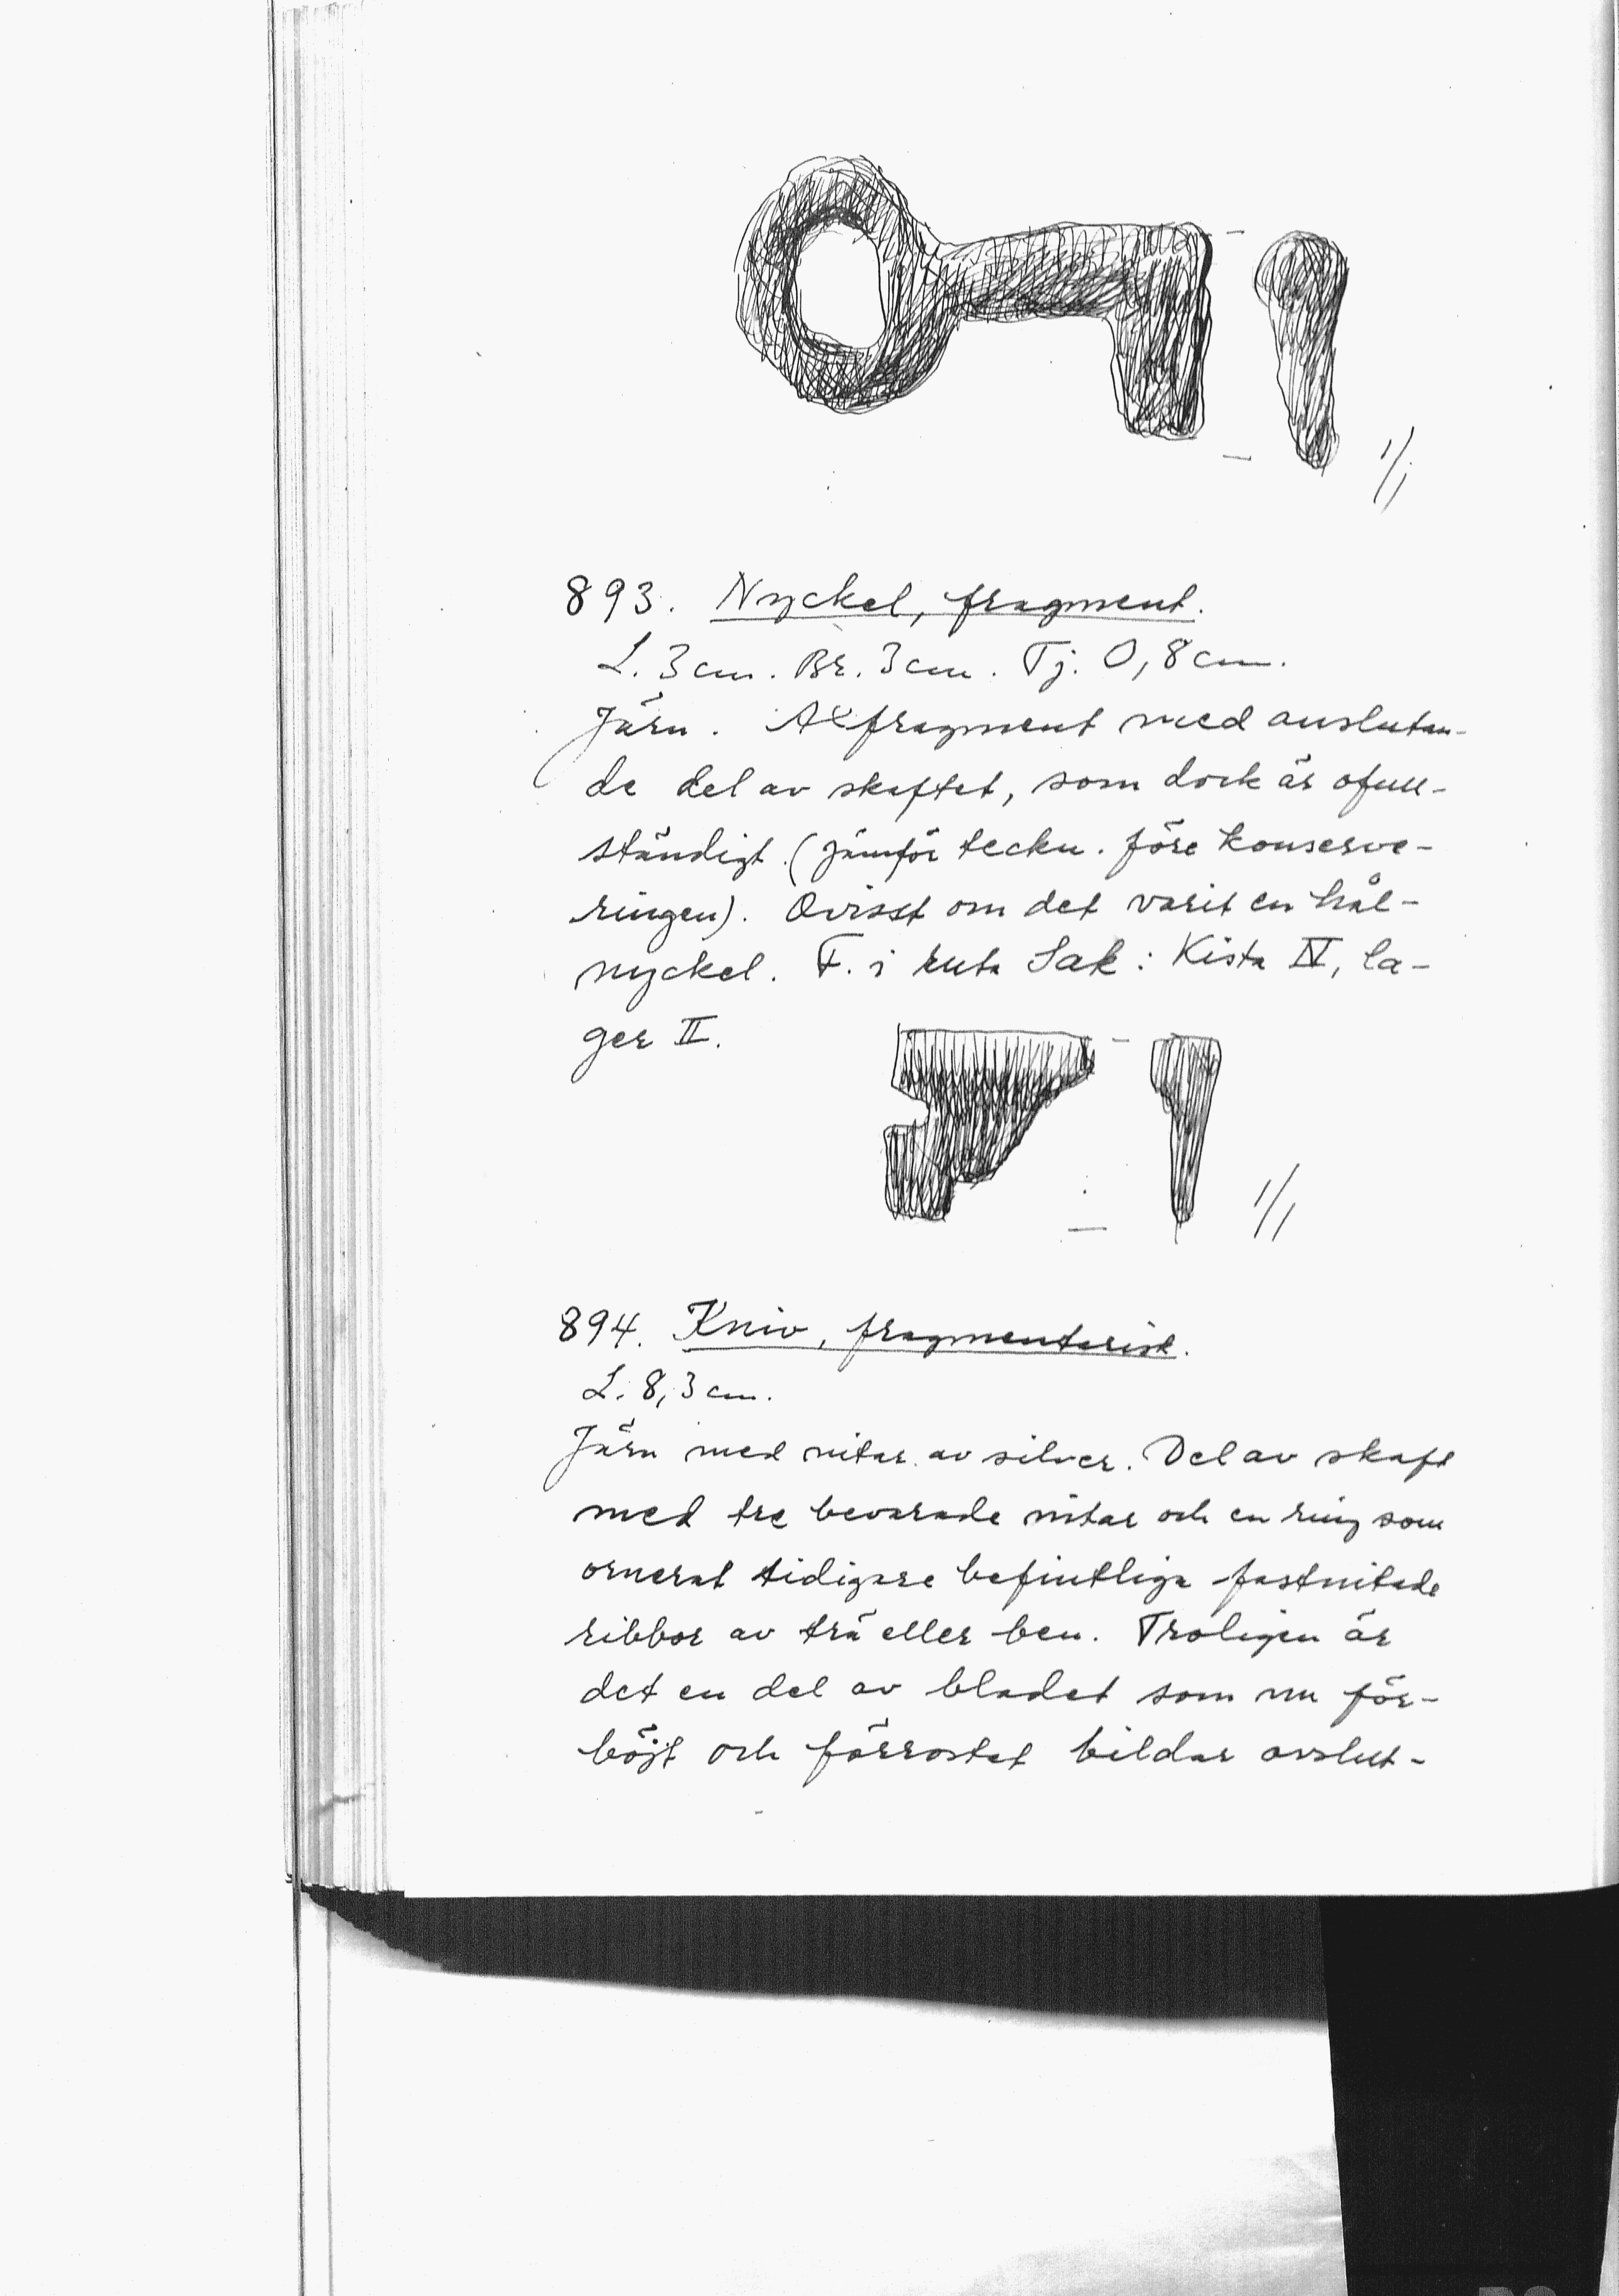 1/1
893. Nyckel, fragment.
L. 3 cm. Br. 3 cm. Tj. 0,8 cm.
Järn. Axfragment med anslutan-
de del av skaftet, som dock är ofull-
ständigt (jämför teckn. före konserve-
ringen). Ovisst om det varit en hål-
nyckel. F. i ruta Sak: Kista IV, la-
ger II.
1/1
894. Kniv, fragmentarisk.
L. 8,3 cm.
Järn med nitar av silver. Del av skaft
med tre bevarade nitar och en ring som
ornerat tidigare befintliga fastnitade
ribbor av trä eller ben. Troligen är
det en del av bladet som nu för-
böjt och förrostat bildar avslut-